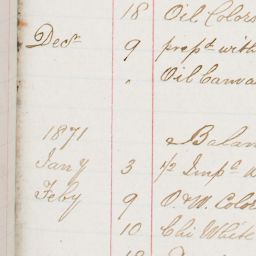 18 Oil Colors
Decr 9 prepd with
" Oil Canva
1871 & Balan
Jany 3 1/2 Impl
Feby 9 O. & W. Color
10 Chi White